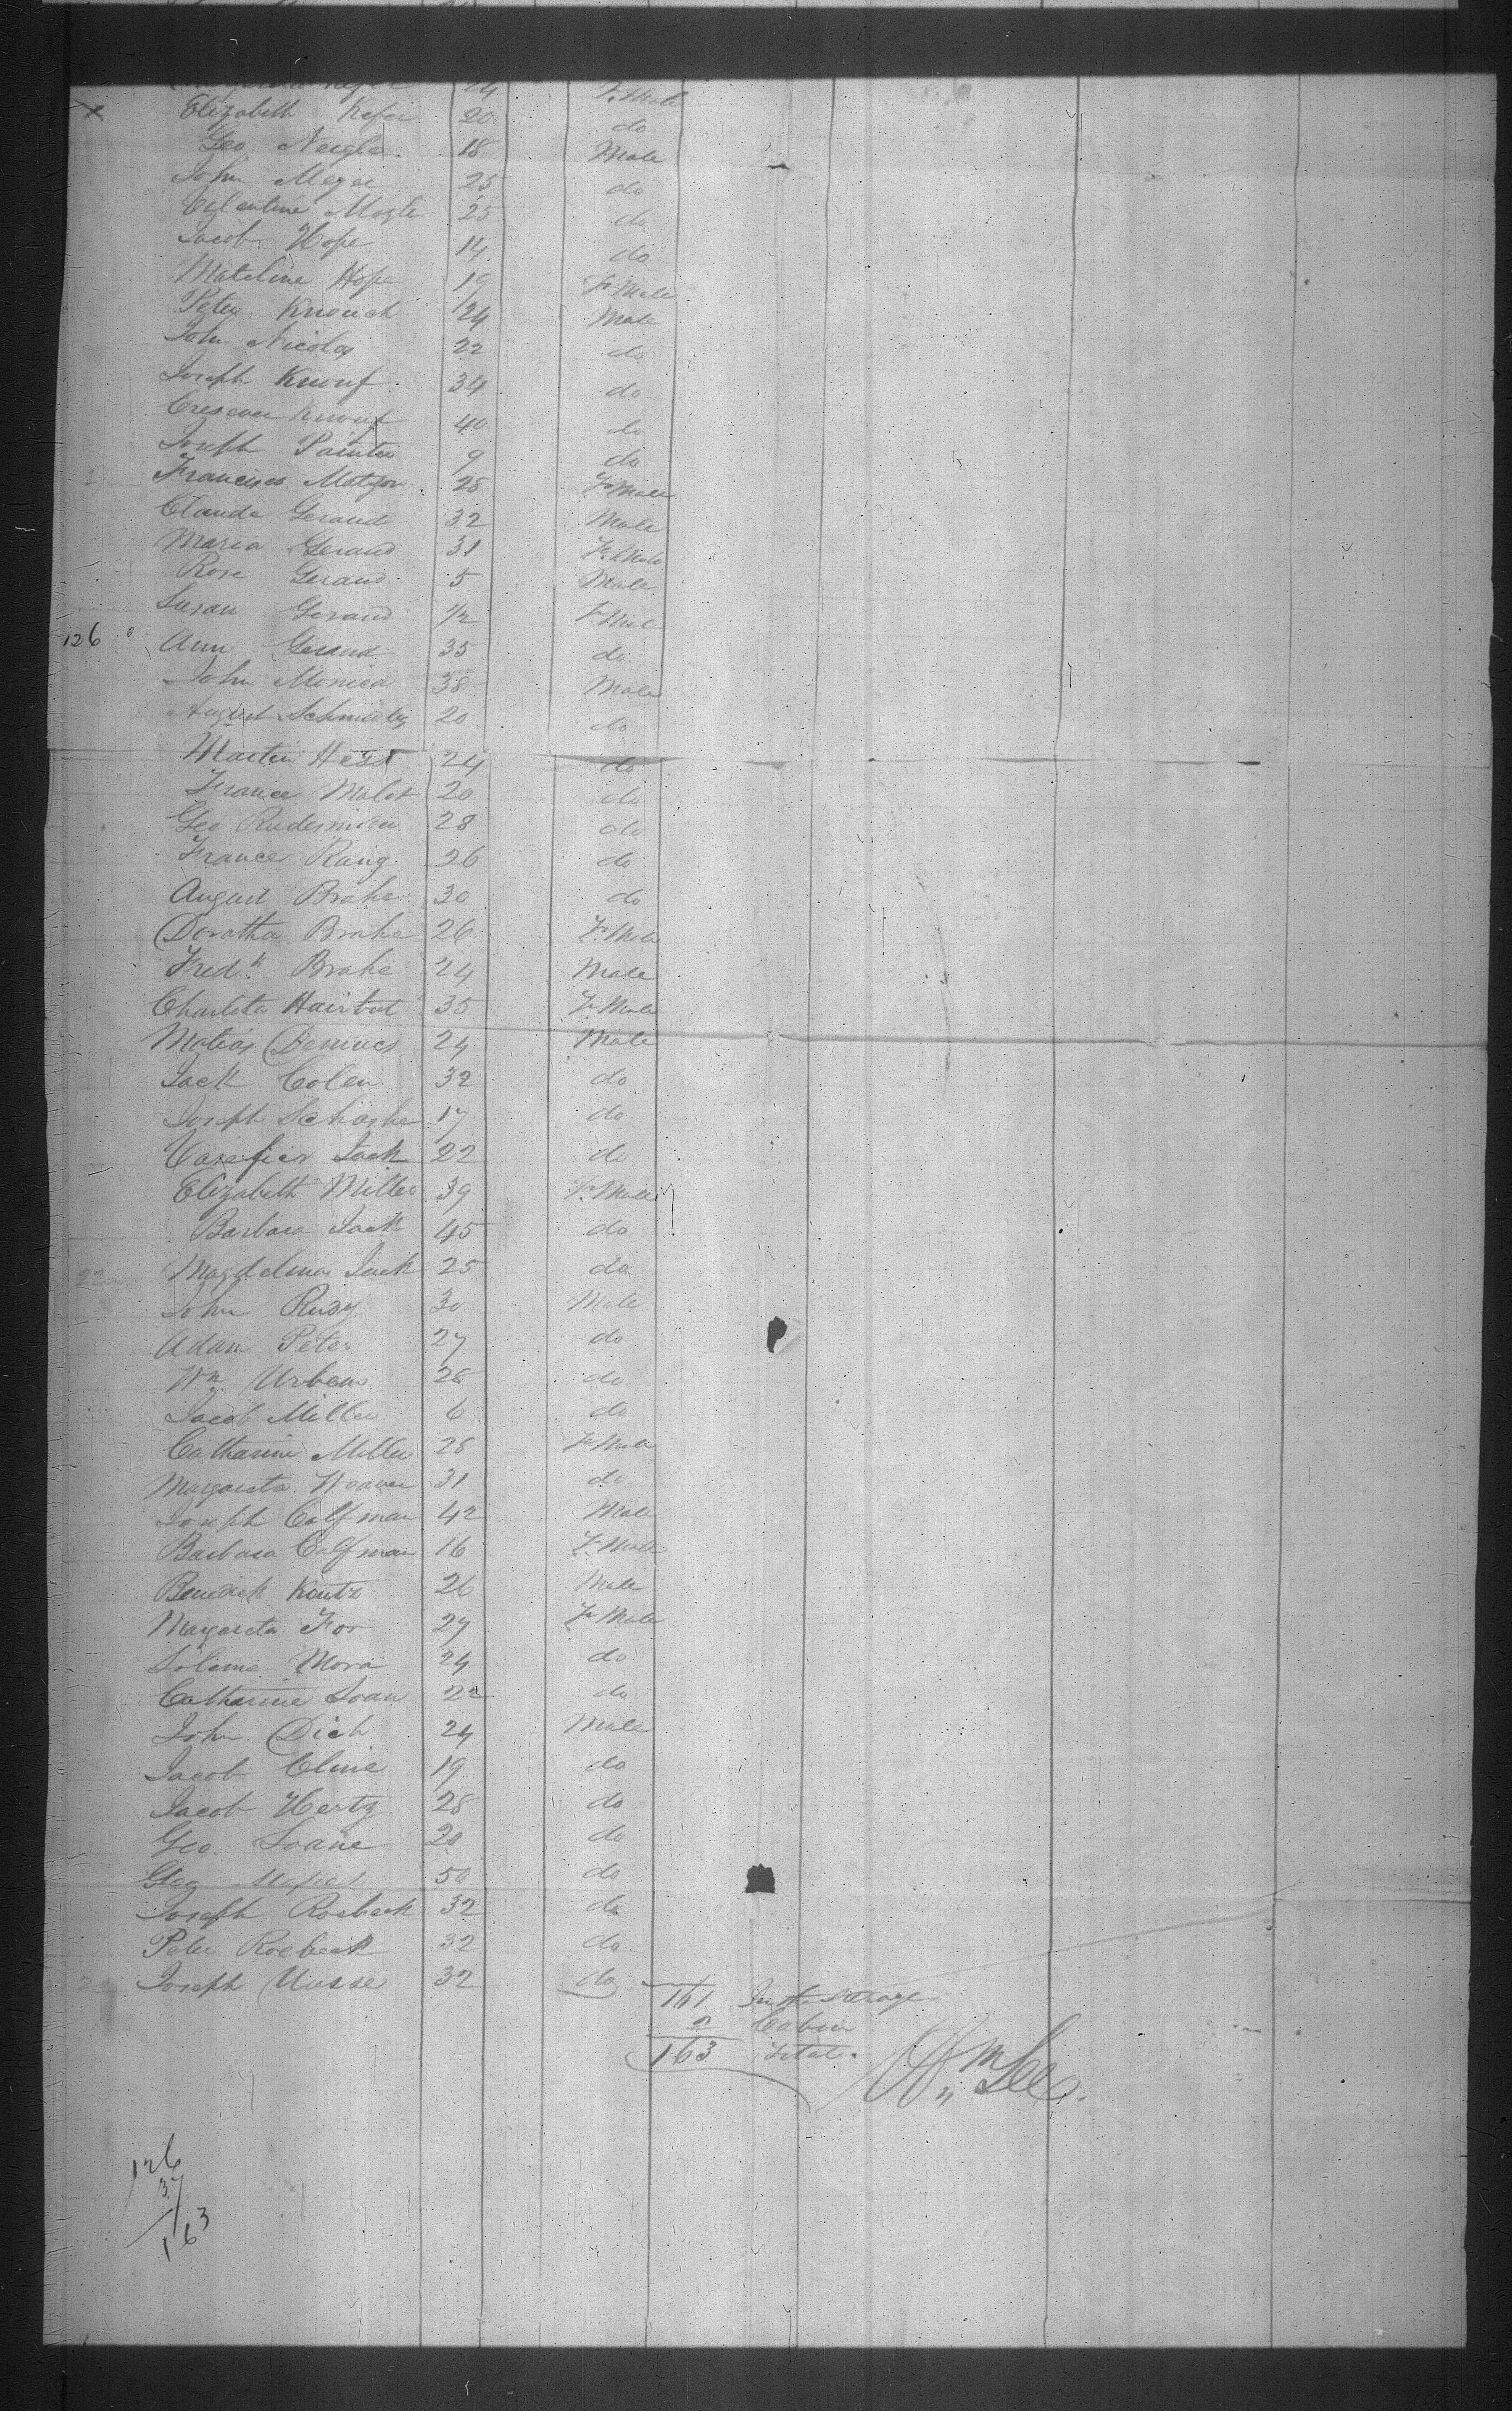 Elizabeth Kefer 20 do
Geo Neigle 18 Male
John Meyer 25 do
Valentine Mogle 25 do
Jacob Hope 14 do
Mateline Hope 19 F. Male
Peter Knouch 24 Male
John Nicolas 22 do
Joseph Knouf 34 do
Knouf 40 do
Joseph Painter 9 do
Francisco Motzon 28 F. Male
Claude Gerand 32 Male
Maria Gerand 31 F. Male
Rose Gerand 5 Male
Susan Gerand 1/2 F. Male
126 Ann Gerand 35 do
John Monica 38 Male
August 20 do
Martin Hess 24 do
France Malot 20 do
Geo 28 do
France Rang 26 do
August Brahe 30 do
Doratha Brahe 26 F. Male
Fredk Brahe 24 Male
Charlota Hairbut 35 F. Male
Matias 24 Male
Jack Colen 32 do
Joseph 17 do
Jack 22 do
Elizabeth Miller 39 F. Male
Barbara Jack 45 do
Magdelina Jack 25 do
John Rudy 30 Male
Adam Peter 27 do
Wm Urbans 28 do
Jacob Miller 6 do
Catharine Miller 28 F. Male
Margareta Weaver 31 do
Joseph Calfman 42 Male
Barbara Calfman 16 F. Male
Benedick Kautz 26 Male
Margareta For 27 F. Male
Mora 24 do
Catharine Soan 22 do
John Dich 24 Male
Jacob Cline 19 do
Jacob Hertz 28 do
Geo. Soane 20 do
50 do
Joseph Roebeck 32 do
Peter Roebeck 32 do
Joseph 32 do
161 In the Sterage
2 Cabin
163 Total.
Wm Lee
126
37
163